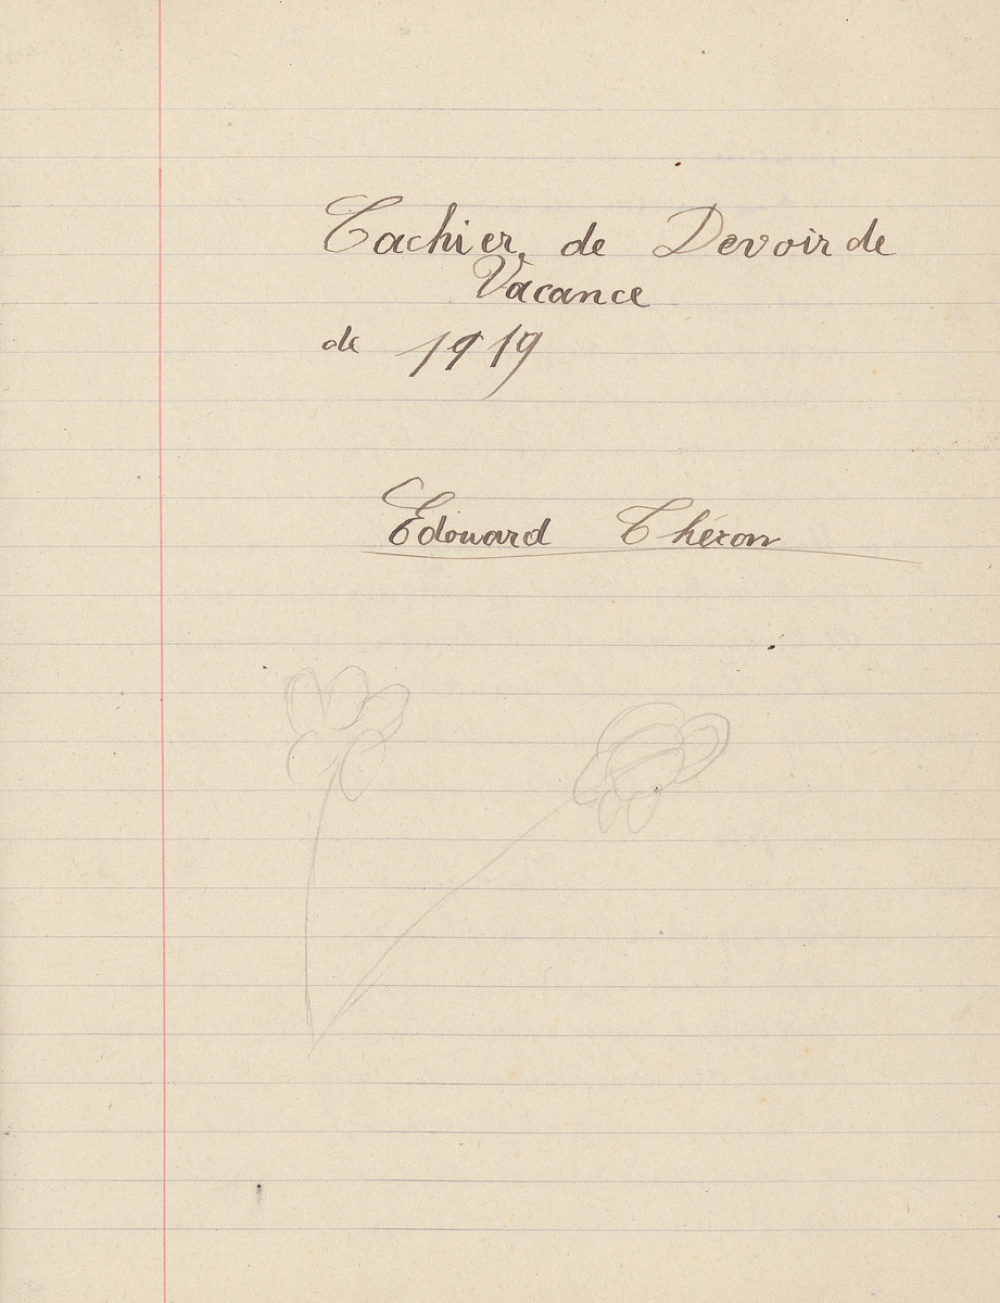 Cachier de Devoir de
Vacance
de 1919
Edouard Théron